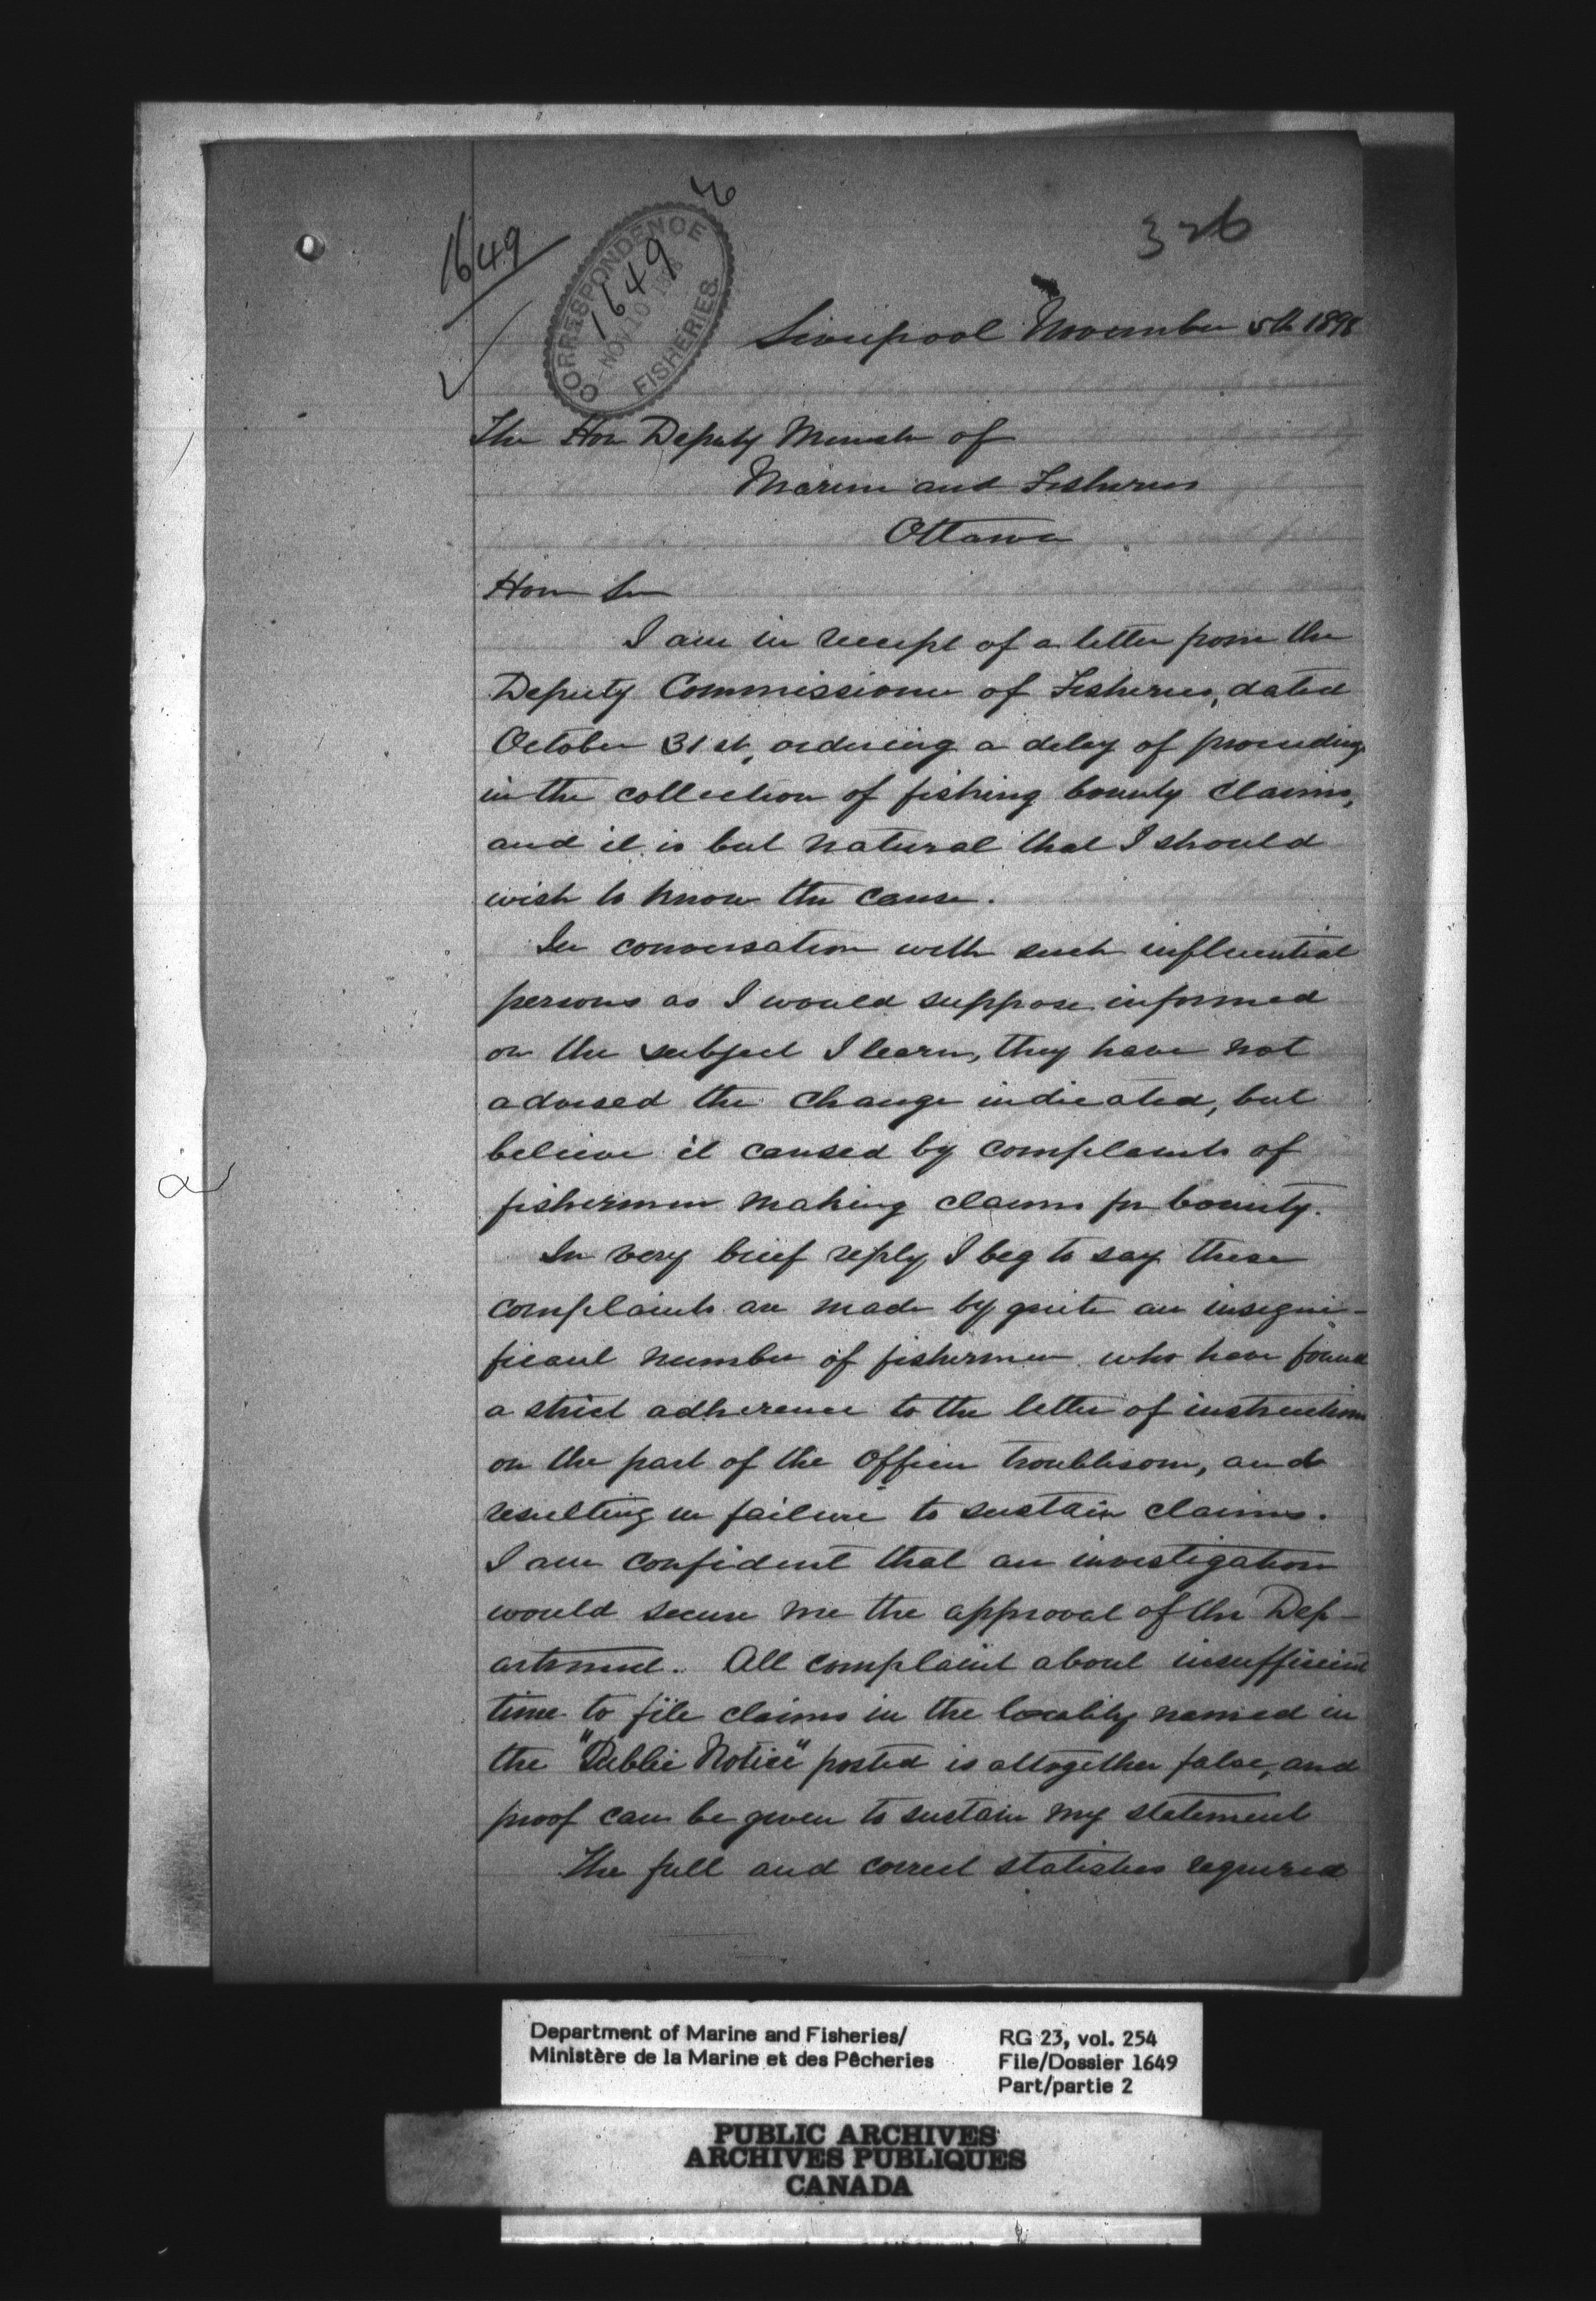 326
1649
CORRESPONDENCE
1649
NOV 10 1898
FISHERIES.
Liverpool November 5th 1898
The Hon Deputy Minister of
Marine and Fisheries
Ottawa
Hon Sir
I am in receipt of a letter from the
Deputy Commissioner of Fisheries, dated
October 31st, ordering a delay of proceedings
in the collection of fishing bounty claims,
and it is but natural that I should
wish to know the cause.
In conversation with such influential
persons as I would suppose informed
on the subject I learn, they have not
advised the change indicated, but
believe it caused by complaints of
fishermen making claims for bounty.
In very brief reply I beg to say these
complaints are made by quite an insigni-
ficant number of fishermen who have found
a strict adherence to the letter of instructions
on the part of the Officer troublesom, and
resulting in failure to sustain claims.
I am confident that an investigation
would secure me the approval of the Dep-
artment. All complaint about insufficient
time to file claims in the locality named in
the "Public Notice" posted is altogether false, and
proof can be given to sustain my statement
The full and correct statistics required
Department of Marine and Fisheries/
Ministère de la Marine et des Pêcheries
RG 23, vol. 254
File/Dossier 1649
Part/partie 2
PUBLIC ARCHIVES
ARCHIVES PUBLIQUES
CANADA